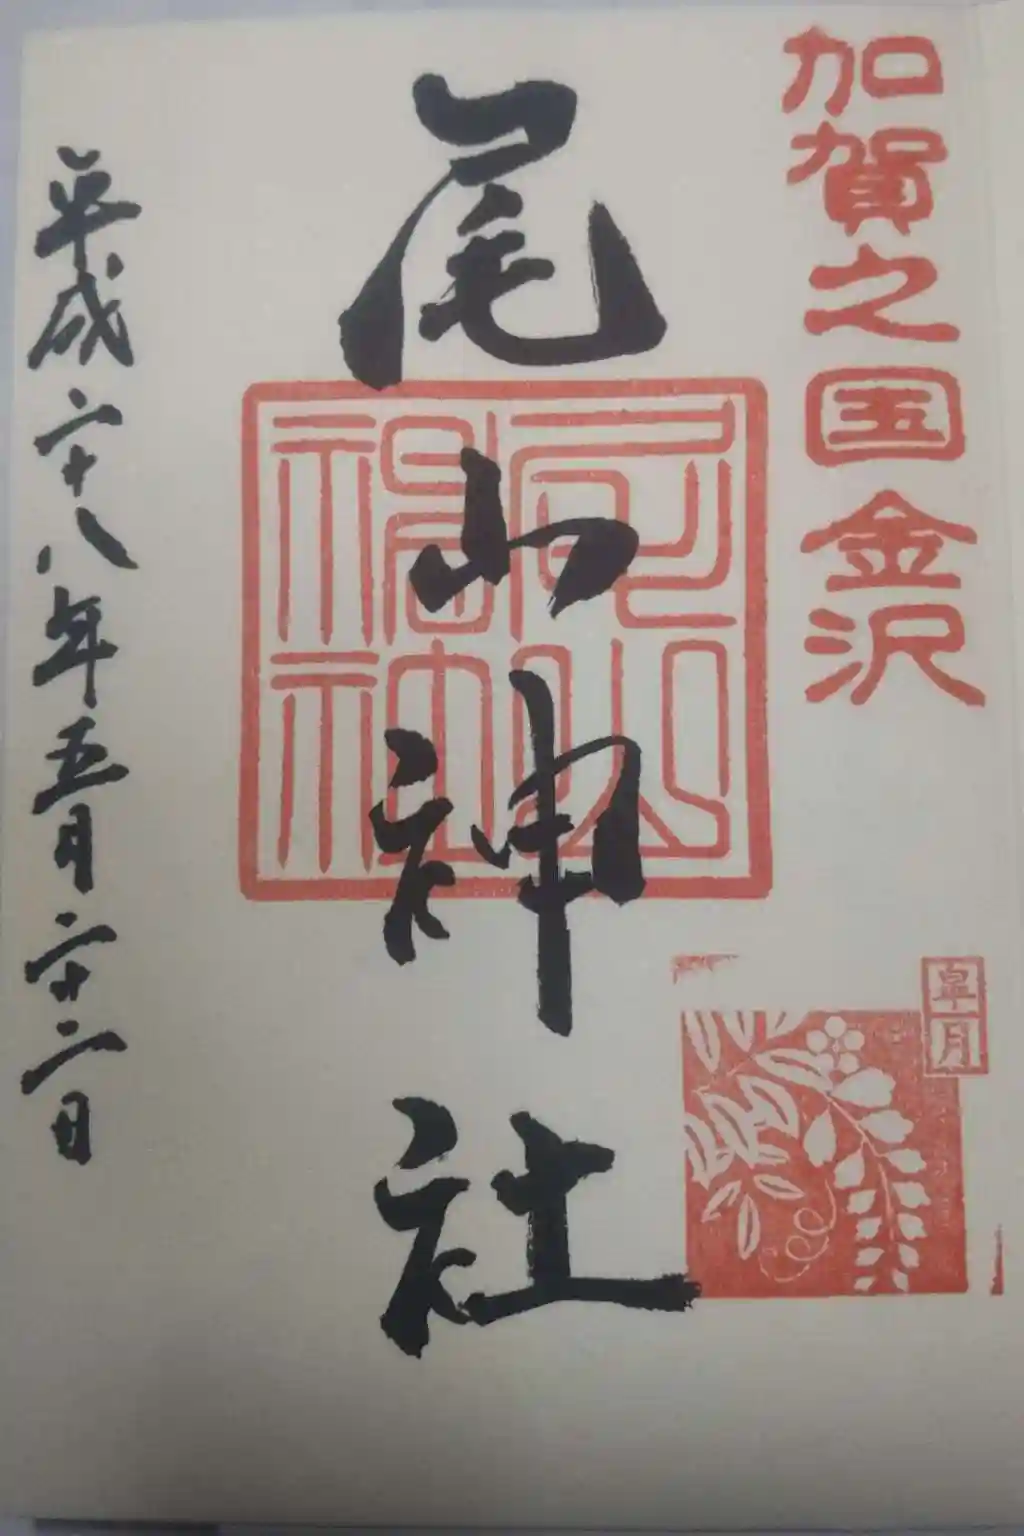 加賀之国金沢
尾山神社
尾山
神社
皐月
平成二十八年五月二十二日